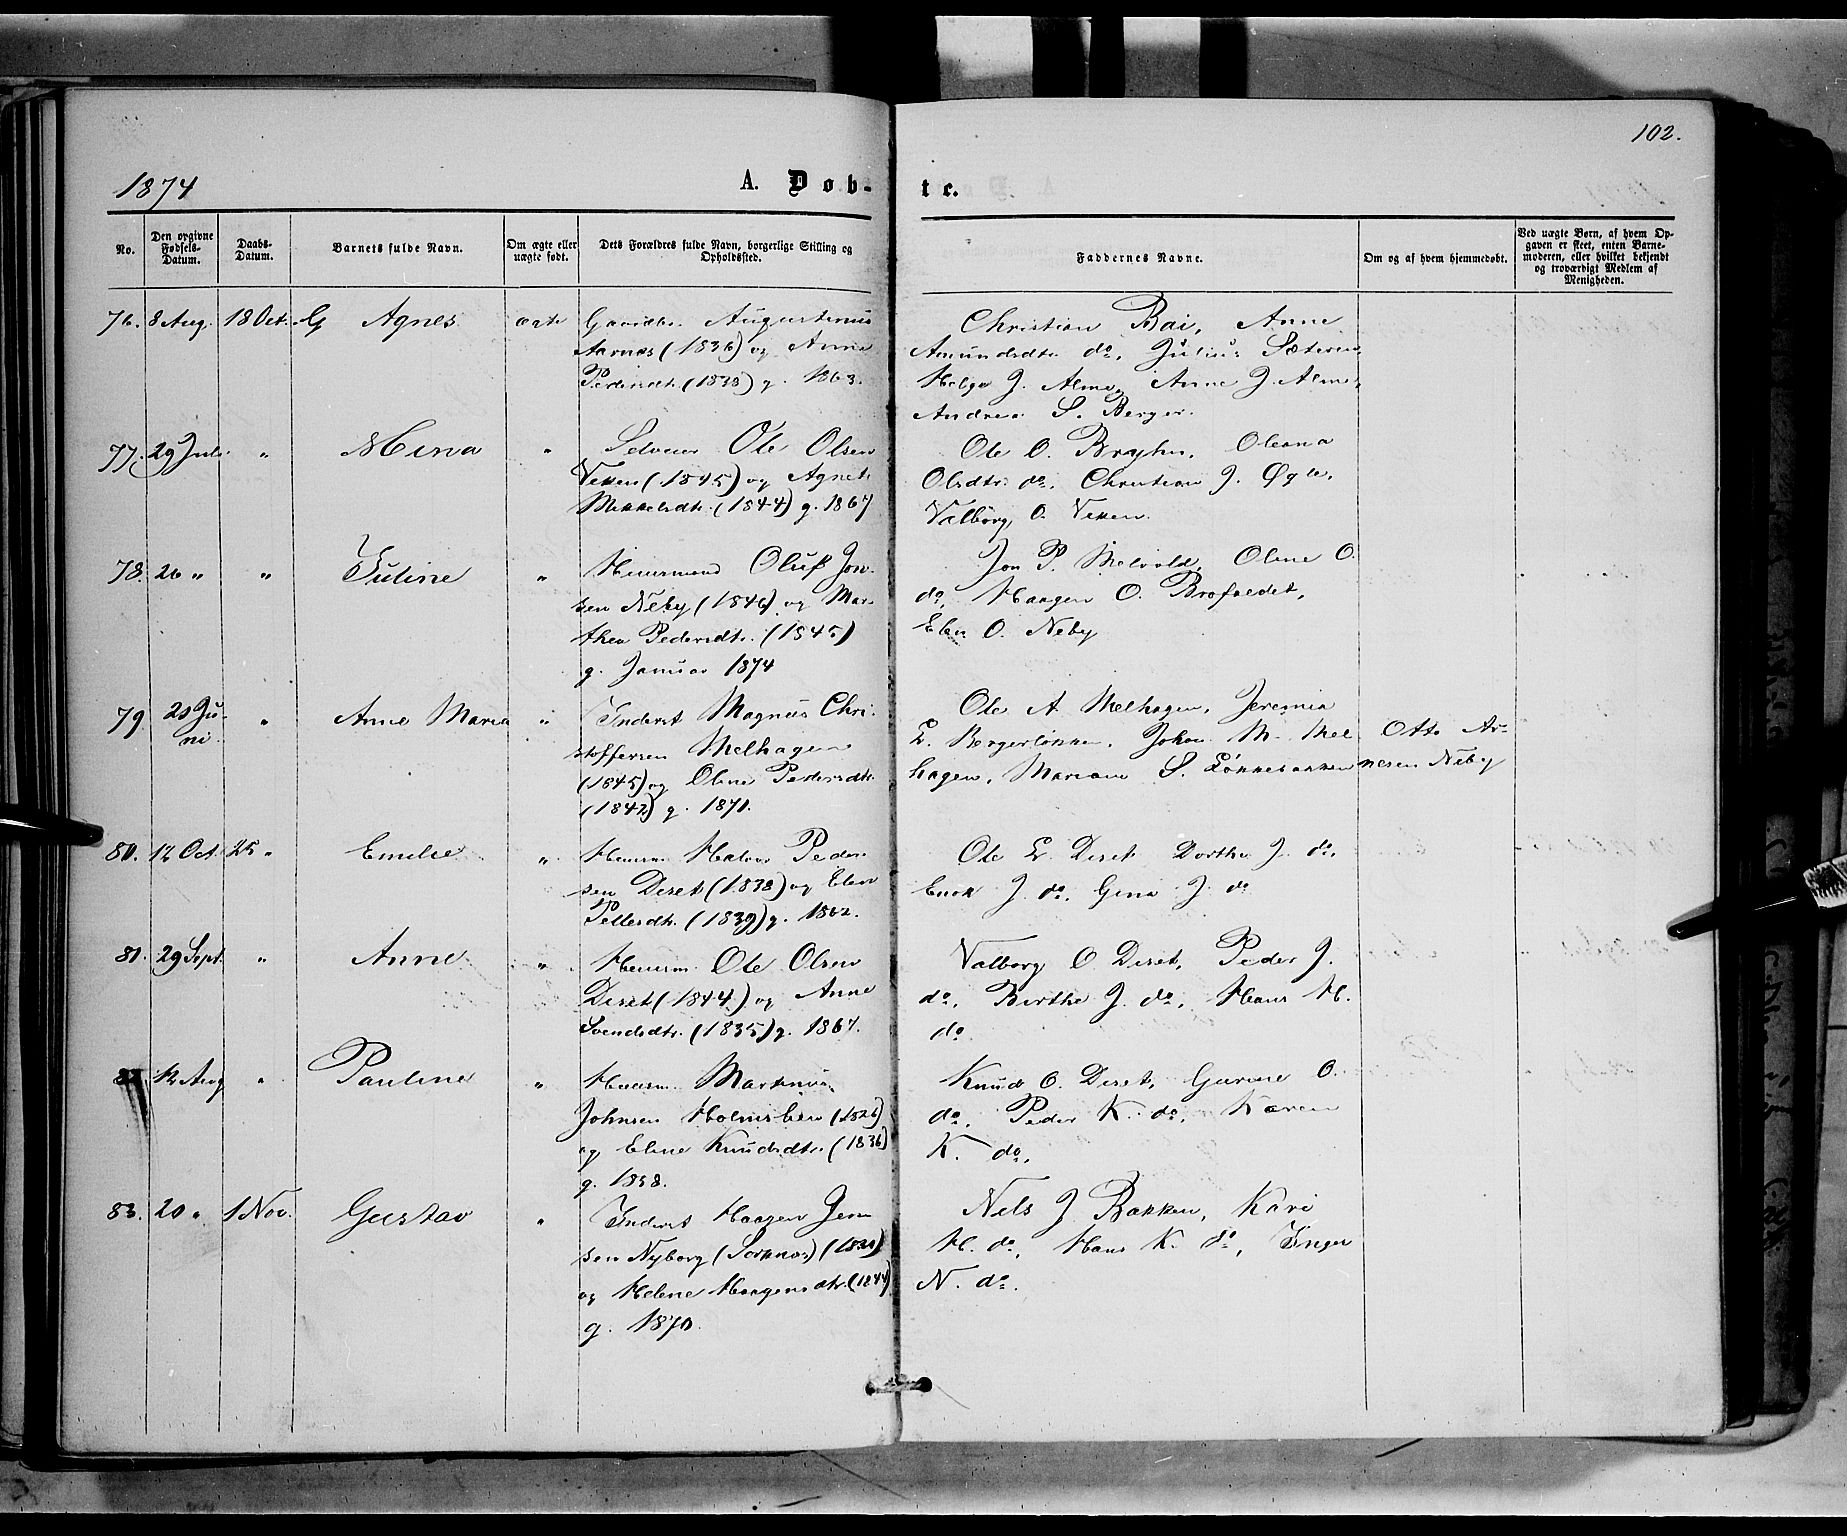 102.
1874
A. Døb-
te.
No.
Den opgivne Fødsels-Datum.
Daabs-Datum.
Barnets fulde Navn.
Om ægte eller uægte født.
Dets Forældres fulde Navn, borgerlige Stilling og Opholdssted.
Faddernes Navne.
Om og af hvem hjemmedøbt.
Ved uægte Børn, af hvem Op-
gaven er skeet, enten Barne-
moderen, eller hvilket bekjendt
og troværdigt Medlem af
Menigheden.
76. 8 Aug. 18 Oct. G Agnes ægte Gaardbr. Augustinus
Aarnæs (1836) og Anne
Pedersdt. (1838) g. 1863.
Christian Bai, Anne
Amundsdtr do, Julius Sæteren,
Helge J. Alme, Anne J. Alme,
Andrea S. Berger.
77. 29 Juli " Mina " Selveier Ole Olsen
Vekken (1845) og Agnete
Mikkelsdtr. (1844) g. 1867
Ole O. Bryhn, Oleana
Olsdtr. do, Christian J. Øgle,
Valborg O. Vekken.
78. 26 " " Juline " Huusmand Oluf Jon-
sen Neby (1846) og Mar-
thea Pedersdt. (1845)
g. Januar 1874
Jon P. Melvold, Oline O.
do, Haagen O. Brofoedet,
Elen O. Neby
79. 20 Ju-
ni. " Anne Maria " Inderst Magnus Chri-
stoffersen Melhagen
(1845) og Oline Pedersdt.
(1842) g. 1870.
Ole A. Melhagen, Jeremia
L. Bergerløkken, Johan M. Mel
hagen, Mariane S. Løkkebakken
Otto Ar-
nesen Neby
80. 12 Oct. 25 " Emilie " Huusm. Halvor Peder
sen Diset (1838) og Elen
Pellersdt. (1839) g. 1862.
Ole L. Diset, Dorthe J. do,
Enok J. do, Gina J. do
81. 29 Sept. " Anne " Huusm. Ole Olsen
Diset (1844) og Anne
Svendsdtr. (1835) g. 1867.
Valborg O. Diset, Peder J.
do, Birthe J. do, Hans H.
do.
82. 12 Aug " Pauline " Huusm. Markus
Johnsen Holmslien (1826)
og Eline Knudsdtr. (1836)
g. 1858.
Knud O. Diset, Gurine O.
do, Peder K. do, Karen
K. do,
83. 20 " 1 Nov. Gustav " Inderst Haagen Jen
sen Nyborg (Sorknæs)
og Helene Haagensdtr. (1844)
g. 1870.
Nels J. Bakken, Kari
H. do, Hans K. do, Inger
N. do.